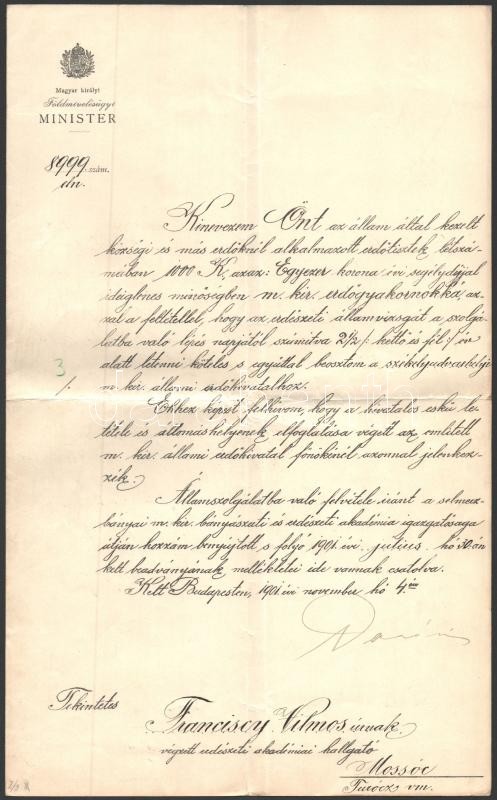 Magyar királyi
Földmívelésügyi
MINISTER
8999. szám.
eln.
Kinevezem Önt az állam által kezelt
községi és más erdőknél alkalmazott erdőtisztek létszá-
mában 1000 K, azaz: Egyezer korona évi segélydíjjal
ideiglenes minőségben m. kir. erdőgyakornokká, az-
zal a feltétellel, hogy az erdészeti államvizsgát a szolgá-
latba való lépés napjától számítva 2 1/2 /: kettő és fél :/ év
alatt letenni köteles s egyúttal beosztom a székelyudvarhelyi
m. kir. állami erdőhivatalhoz.
3
/.
Ehhez képest felhívom, hogy a hivatalos eskü le-
tétele és állomáshelyének elfoglalása végett az említett
m. kir. állami erdőhivatal főnökénél azonnal jelenkez-
zék.
Államszolgálatba való felvétele iránt a selmecz-
bányai m. kir. bányászati és erdészeti akadémia igazgatósága
útján hozzám benyújtott s folyó 1901. évi julius hó 30-án
kelt beadványának mellékletei ide vannak csatolva.
Kelt Budapesten, 1901. évi november hó 4-én
Darányi
Tekintetes
Franciscy Vilmos úrnak
végzett erdészeti akadémiai hallgató
Mossóc
Turócz vm.